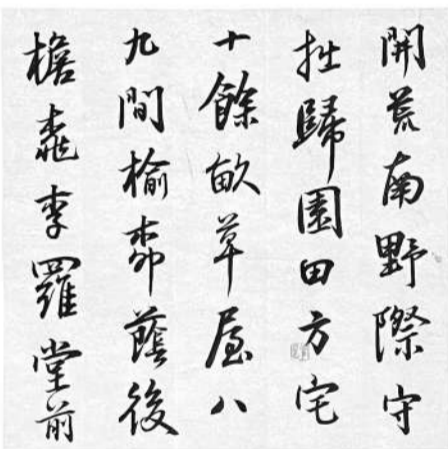 開荒南野際守
拙歸園田方宅
十餘畝草屋八
九間榆桺蔭後
檐桃李羅堂前